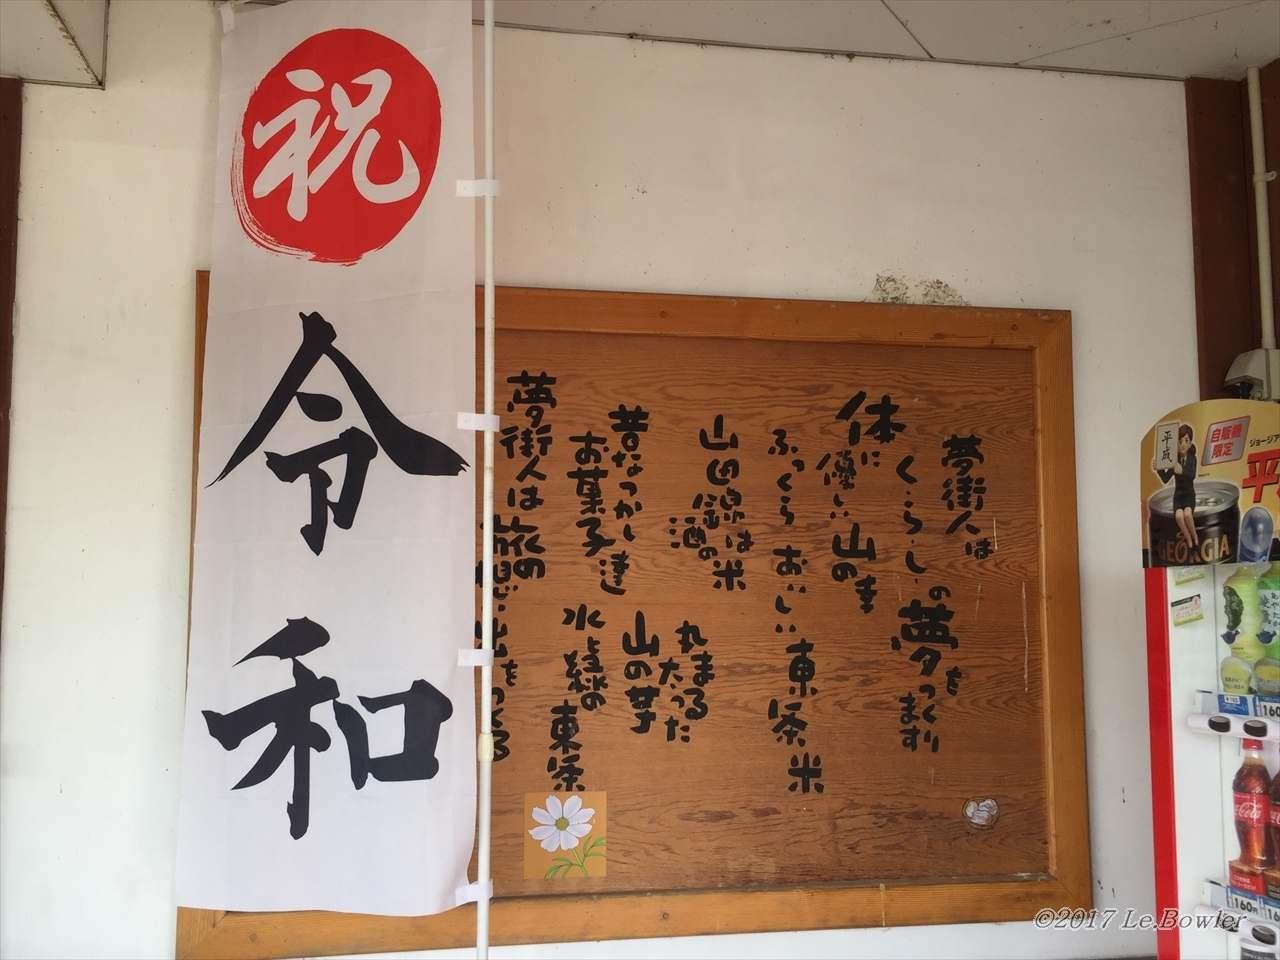 祝
令和
夢街人は
くらしの夢を
つくります
体に優しい山の幸
ふっくらおいしい東条米
山田錦は米
酒の
丸まる
たった
山の芋
昔なつかし達
お菓子
水と緑の東条
夢街人は旅の
をつくる
平成
自販機
限定
ジョージア
平
GEORGIA
160
160円
Coca
©2017 Le.Bowler